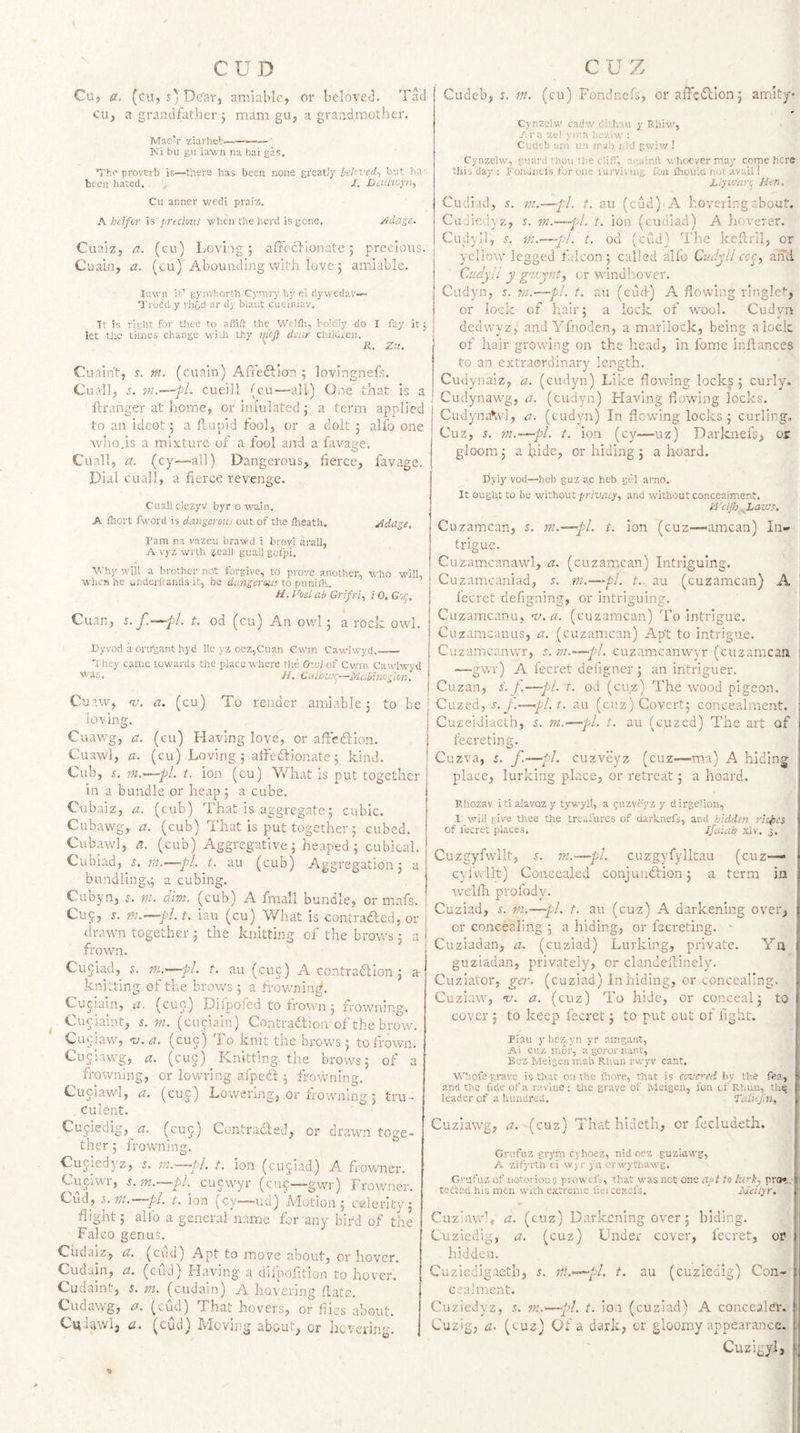 CUD
Cu, a. (cu, s) Dear, amiable, or beloved. Tad
cu, a grandfather; mam gu, a grandmother.
Mae'r ziarheb———
Ni bu gu iawn na bai gâs.
The proverb is—there has been none greatly beloved, but has
been hated. I. Deulwyn,
Cu anner wedi praiz.
A heifer is precious when the herd is gone. Adage.
Cuaiz, a. (cu) Loving; affectionate; precious.
Cuain, a. (cu) Abounding with love; amiable.
Iawn it' gymhorth Cymry hy ei dywedav—
Troed y rhôd ar dy blant cueiniav.
It is right for thee to assist the Welsh, boldly do I say it;
let the times change with thy most dear children.
R. Zu.
Cuaint, s. m. (cuain) Affection; lovingness.
Cuall, s. m.—pl. cueill (cu—all) One that is a
stranger at home, or insulated; a term applied
to an ideot; a stupid fool, or a dolt; also one
who is a mixture of a fool and a savage.
Cuall, a. (cy—all) Dangerous, fierce, savage.
Dial cuall, a fierce revenge.
Cuall clezyv byr o wain.
A short sword is dangerous out of the sheath. Adage.
Pam na vazeu brawd i brovi arall,
A vyz wrth çeall guall gospi.
Why will a brother not forgive, to prove another, who will,
when he understands it, be dangerous to punish.
H. Voel ab Grifri, i O. Goç.
Cuan, s. f.—pl. t. od (cu) An owl; a rock owl.
Dyvod a orugant hyd lle yz oez, Cuan Cwm Cawlwyd,——
They came towards the place where the Owl of Cwm Cawlwyd
was. H. Culhwç—Mabinogion.
Cuaw, v. a. (cu) To render amiable; to be
loving.
Cuawg, a. (cu) Having love, or affection.
Cuawl, a. (cu) Loving; affectionate; kind.
Cub, s. m.—pl. t. ion (cu) What is put together
in a bundle or heap; a cube.
Cubaiz, a. (cub) That is aggregate; cubic.
Cubawg, a. (cub) That is put together; cubed.
Cubawl, a. (cub) Aggregative; heaped; cubical.
Cubiad, s. m.—pl. t. au (cub) Aggregation; a
bundling; a cubing.
Cubyn, s. m. dim. (cub) A small bundle, or mass.
Cuç, s. m.—pl. t. iau (cu) What is contracted, or
drawn together; the knitting of the brows; a
frown.
Cuçiad, s. m.—pl. t. au (cuç) A contraction; a
knitting of the brows; a frowning.
Cuçiain, a. (cuç) Disposed to frown; frowning.
Cuçiaint, s. m. (cuçiain) Contraction of the brow.
Cuçiaw, v. a. (cuç) To knit the brows; to frown.
Cuçiawg, a. (cuç) Knitting the brows; of a
frowning, or lowring aspect; frowning.
Cuçiawl, a. (cuç) Lowering, or frowning; tru-
culent.
Cuçiedig, a. (cuç) Contracted, or drawn toge-
ther; frowning.
Cuçiedyz, s. m.—pl. t. ion (cuçiad) A frowner.
Cuçiwr, s. m.—pl. cuçwyr (cuç—gwr) Frowner.
Cud, s. m.—pl. t. ion (cy—ud) Motion; celerity;
flight; also a general name for any bird of the
Falco genus.
Cudaiz, a. (cûd) Apt to move about, or hover.
Cudain, a. (cûd) Having a disposition to hover.
Cudaint, s. m. (cudain) A hovering state.
Cudawg, a. (cûd) That hovers, or flies about.
Cudawl, a. (cûd) Moving about, or hovering.
CUZ
Cudeb, s. m. (cu) Fondness, or affection; amity.
Cynzelw cadw dithau y Rhiw,
Ar a zel yma heziw:
Cudeb am un mab nid gwiw!
Cynzelw, guard thou the cliff, against whoever may come here
this day: Fondness for one surviving son should not avail!
Llywarç Hen.
Cudiad, s. m.—pl. t. au (cûd) A hovering about.
Cudiedyz, s. m.—pl. t. ion (cudiad) A hoverer.
Cudyll, s. m.—pl. t. od (cûd) The kestril, or
yellow legged falcon; called also Cudyll coç, and
Cudyll y gwynt, or windhover.
Cudyn, s. m.—pl. t. au (cûd) A flowing ringlet,
or lock of hair; a lock of wool. Cudyn
dedwyz, and Ysnoden, a marilock, being a lock
of hair growing on the head, in some instances
to an extraordinary length.
Cudynaiz, a. (cudyn) Like flowing locks; curly.
Cudynawg, a. (cudyn) Having flowing locks.
Cudynawl, a. (cudyn) In flowing locks; curling.
Cuz, s. m.—pl. t. ion (cy—uz) Darkness, or
gloom; a hide, or hiding; a hoard.
Dyly vod—heb guz ac heb gêl arno.
It ought to be without privacy, and without concealment.
Welsh Laws.
Cuzamcan, s. m.—pl. t. ion (cuz—amcan) In-
trigue.
Cuzamcanawl, a. (cuzamcan) Intriguing.
Cuzamcaniad, s. m.—pl. t. au (cuzamcan) A
secret designing, or intriguing.
Cuzamcanu, v. a. (cuzamcan) To intrigue.
Cuzamcanus, a. (cuzamcan) Apt to intrigue.
Cuzamcanwr, s. m.—pl. cuzamcanwyr (cuzamcan
—gwr) A secret designer; an intriguer.
Cuzan, s. f.—pl. t. od (cuz) The wood pigeon.
Cuzed, s. f.—pl. t. au (cuz) Covert; concealment.
Cuzeidiaeth, s. m.—pl. t. au (cuzed) The art of
secreting.
Cuzva, s. f.—pl. cuzvëyz (cuz—ma) A hiding
place, lurking place, or retreat; a hoard.
Rhozav i ti alavoz y tywyll, a çuzvëyz y dirgelion,
I will give thee the treasures of darkness, and hidden riches
of secret places. Isaiah xlv. 3.
Cuzgyswllt, s. m.—pl. cuzgysylltau (cuz—
cyswllt) Concealed conjunction; a term in
welsh prosody.
Cuziad, s. m.—pl. t. au (cuz) A darkening over,
or concealing; a hiding, or secreting.
Cuziadan, a. (cuziad) Lurking, private. Yn
guziadan, privately, or clandestinely.
Cuziator, ger. (cuziad) In hiding, or concealing.
Cuziaw, v. a. (cuz) To hide, or conceal; to
cover; to keep secret; to put out of sight.
Piau y bez yn yr amgant,
Ai cuz mor, a goror nant,
Bez Meigen mab Rhun rwyv cant.
Whose grave is that on the shore, that is covered by the sea,
and the side of a ravine: the grave of Meigen, son of Rhun, the
leader of a hundred. Taliesin,
Cuziawg, a. (cuz) That hideth, or secludeth.
Grufuz grym cyhoez, nid oez guziawg,
A zifyrth ei wyr yn erwythawg.
Grufuz of notorious prowess, that was not one apt to lurk, pro-
tected his men with extreme fierceness. Meilyr.
Cuziawl, a. (cuz) Darkening over; hiding.
Cuziedig, a. (cuz) Under cover, secret, or
hidden.
Cuziedigaeth, s. m.—pl. t. au (cuziedig) Con-
cealment.
Cuziedyz, s. m.—pl. t. ion (cuziad) A concealer.
Cuzig, a. (cuz) Of a dark, or gloomy appearance.
Cuzigyl,